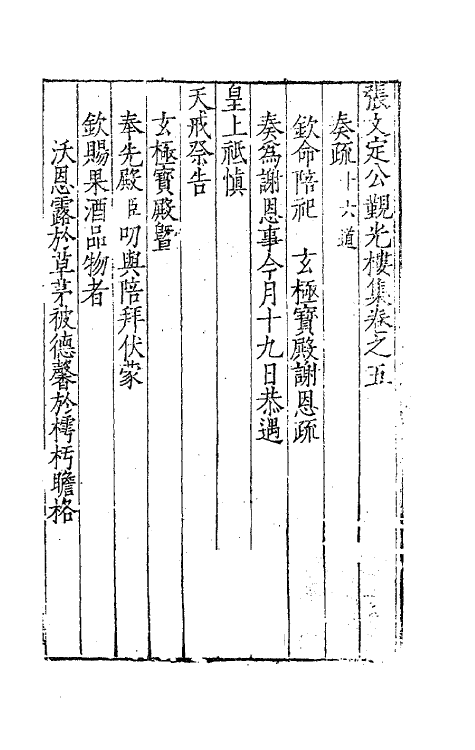 張文定公觀光樓集卷之五
奏疏十六道
欽命陪祀 玄極寶殿謝恩疏
奏為謝恩事今月十九日恭遇
皇上祗愼
天戒祭告
玄極寶殿曁
奉先殿臣叨與陪拜伏蒙
欽賜果酒品物者
沃恩露於草茅被德馨於樗朽瞻格